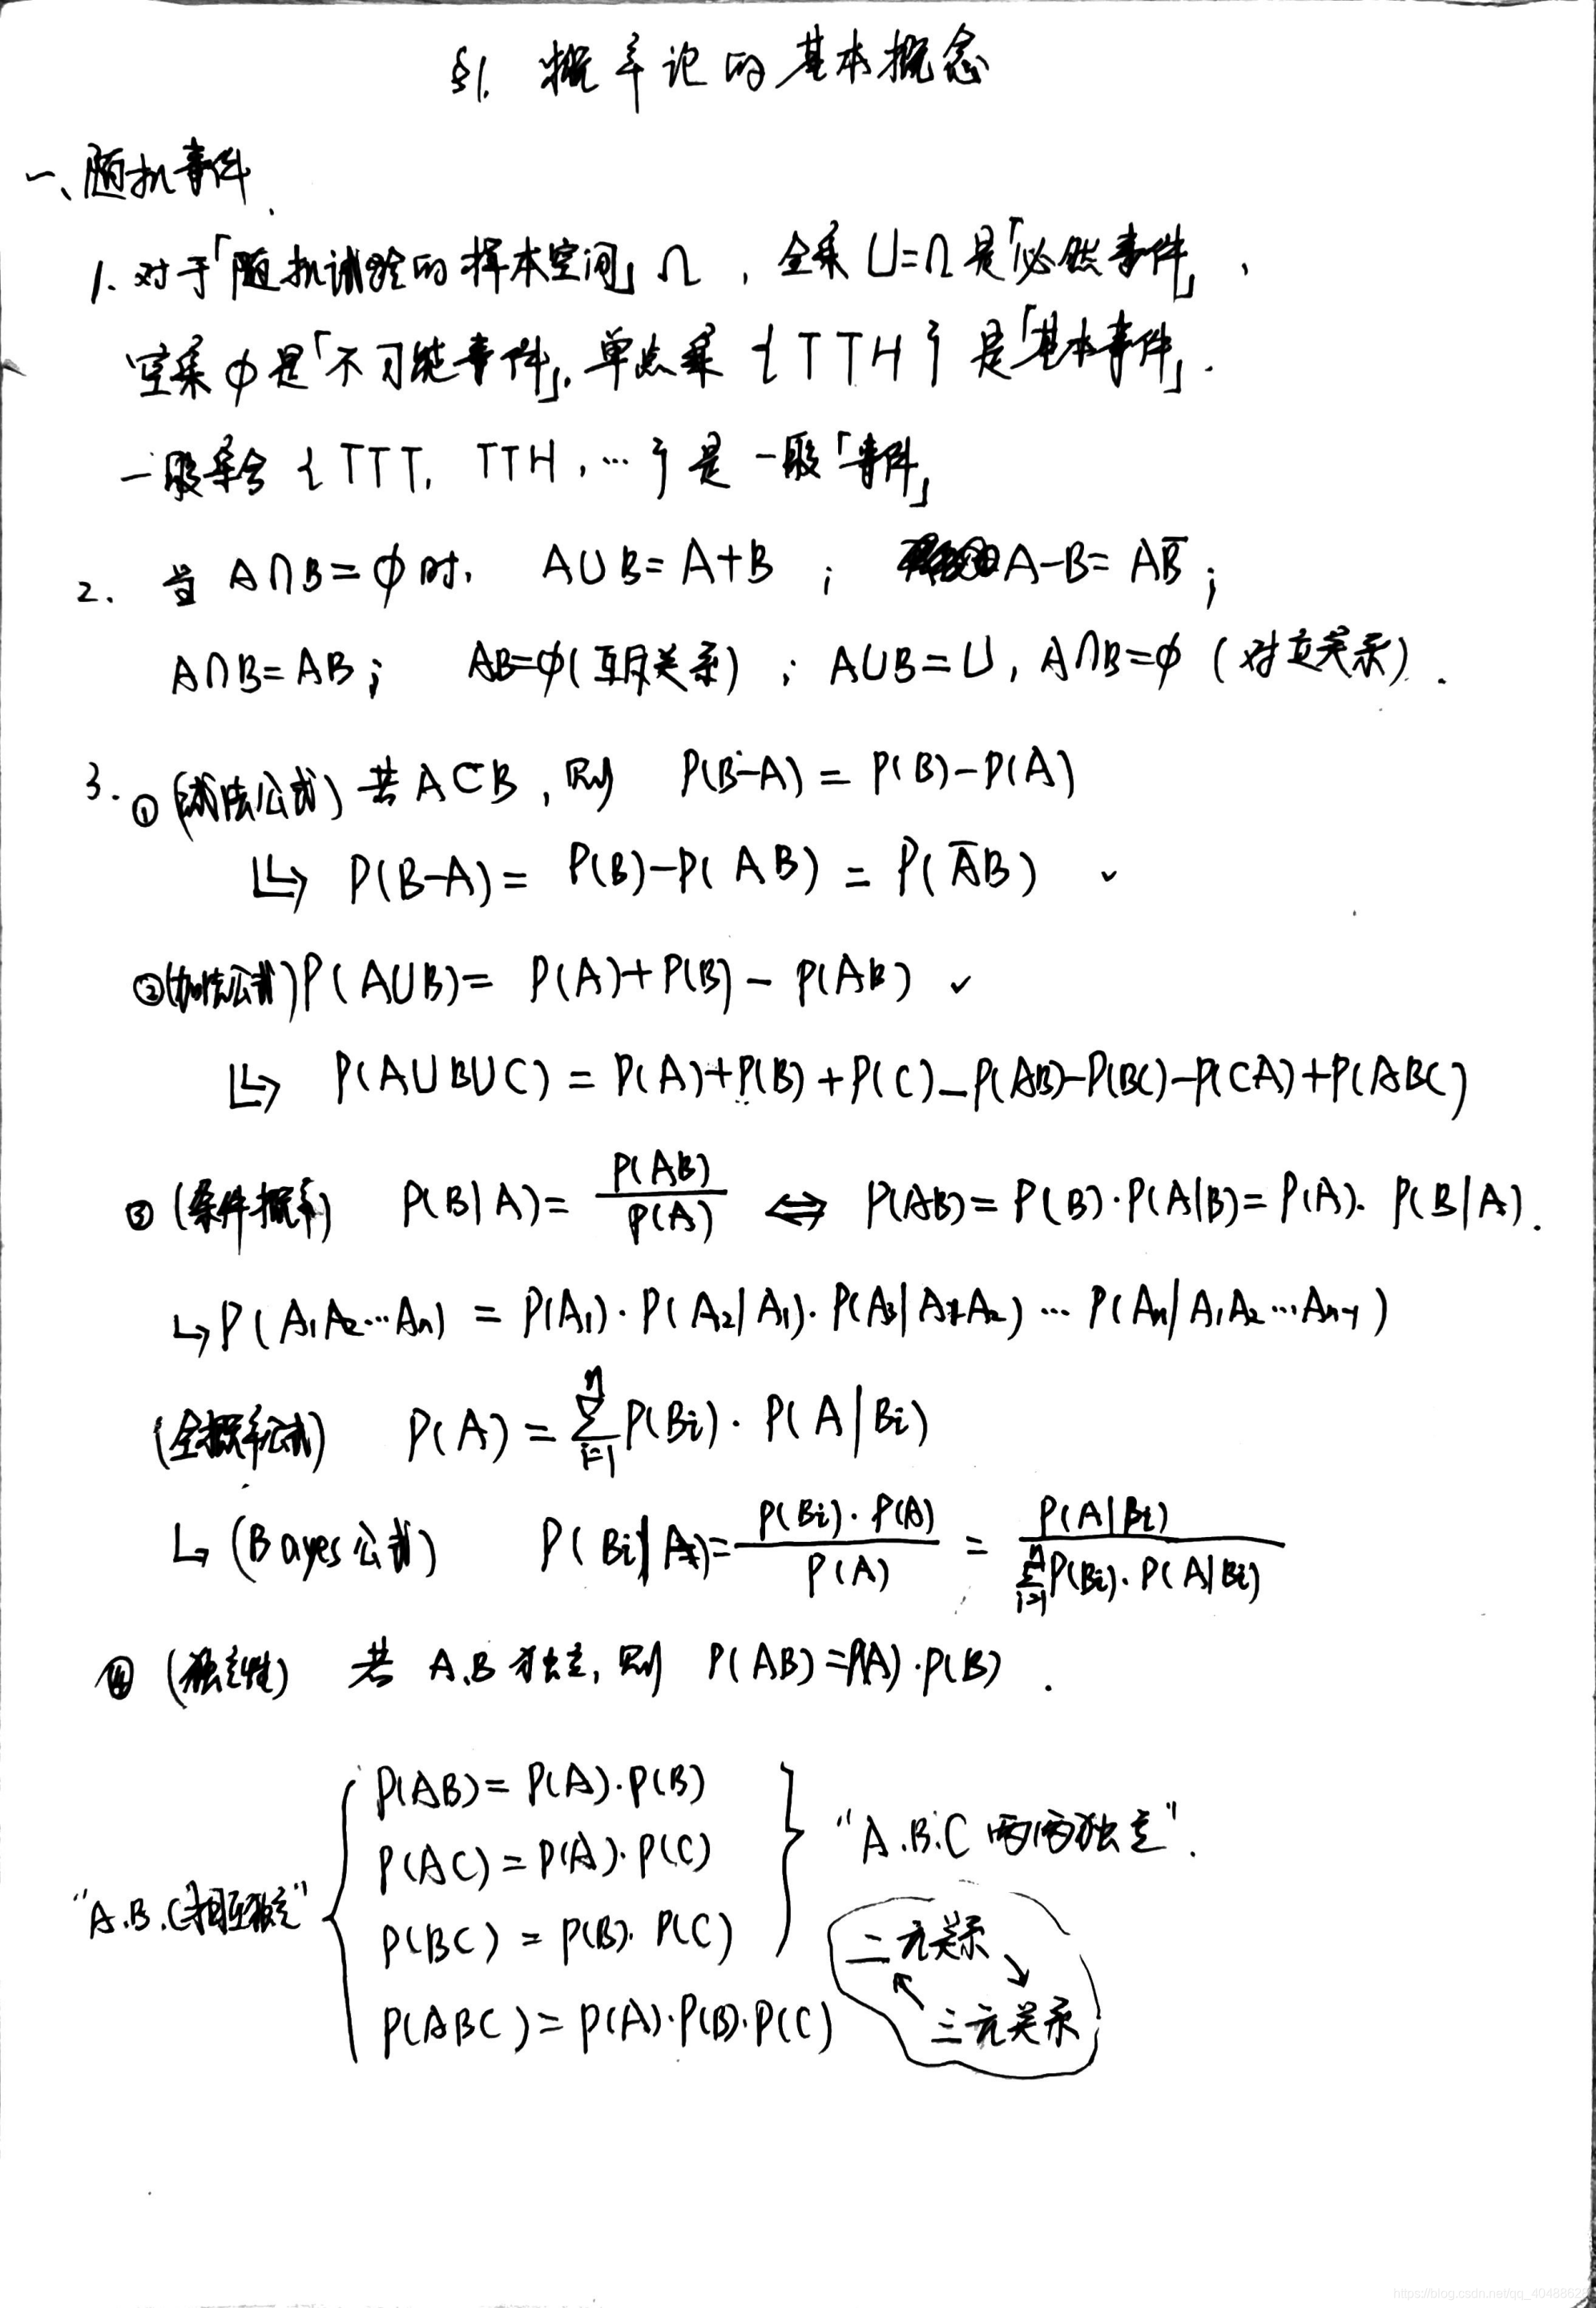 §1. 概率论的基本概念
一、随机事件
1. 对于「随机试验的样本空间」Ω，全集 U=Ω 是「必然事件」，
空集 ϕ 是「不可能事件」，单点集 {TTH} 是「基本事件」.
一般集合 {TTT, TTH, …} 是一般「事件」
2. 当 A∩B=ϕ 时, A∪B=A+B ; A-B=AB̅ ;
A∩B=AB ; AB=ϕ(互斥关系) ; A∪B=U, A∩B=ϕ (对立关系).
3. ① (减法公式) 若 A⊂B, 则 P(B-A)=P(B)-P(A)
↳ P(B-A)=P(B)-P(AB)=P(A̅B) ✓
② (加法公式) P(A∪B)=P(A)+P(B)-P(AB) ✓
↳ P(A∪B∪C)=P(A)+P(B)+P(C)-P(AB)-P(BC)-P(CA)+P(ABC)
③ (条件概率) P(B|A)=P(AB)/P(A) ⇔ P(AB)=P(B)·P(A|B)=P(A)·P(B|A).
↳ P(A₁A₂…Aₙ)=P(A₁)·P(A₂|A₁)·P(A₃|A₁A₂)…P(Aₙ|A₁A₂…Aₙ₋₁)
(全概率公式) P(A)=∑ⁿᵢ₌₁P(Bi)·P(A|Bi)
↳ (Bayes公式) P(Bi|A)=P(Bi)·P(A)/P(A)=P(A|Bi)/∑ⁿᵢ₌₁P(Bi)·P(A|Bi)
④ (独立性) 若 A.B 独立, 则 P(AB)=P(A)·P(B).
P(AB)=P(A)·P(B)
P(AC)=P(A)·P(C)
"A.B.C 两两独立".
"A.B.C相互独立"
P(BC)=P(B)·P(C)
二元关系
P(ABC)=P(A)·P(B)·P(C)
三元关系
https://blog.csdn.net/qq_4048862